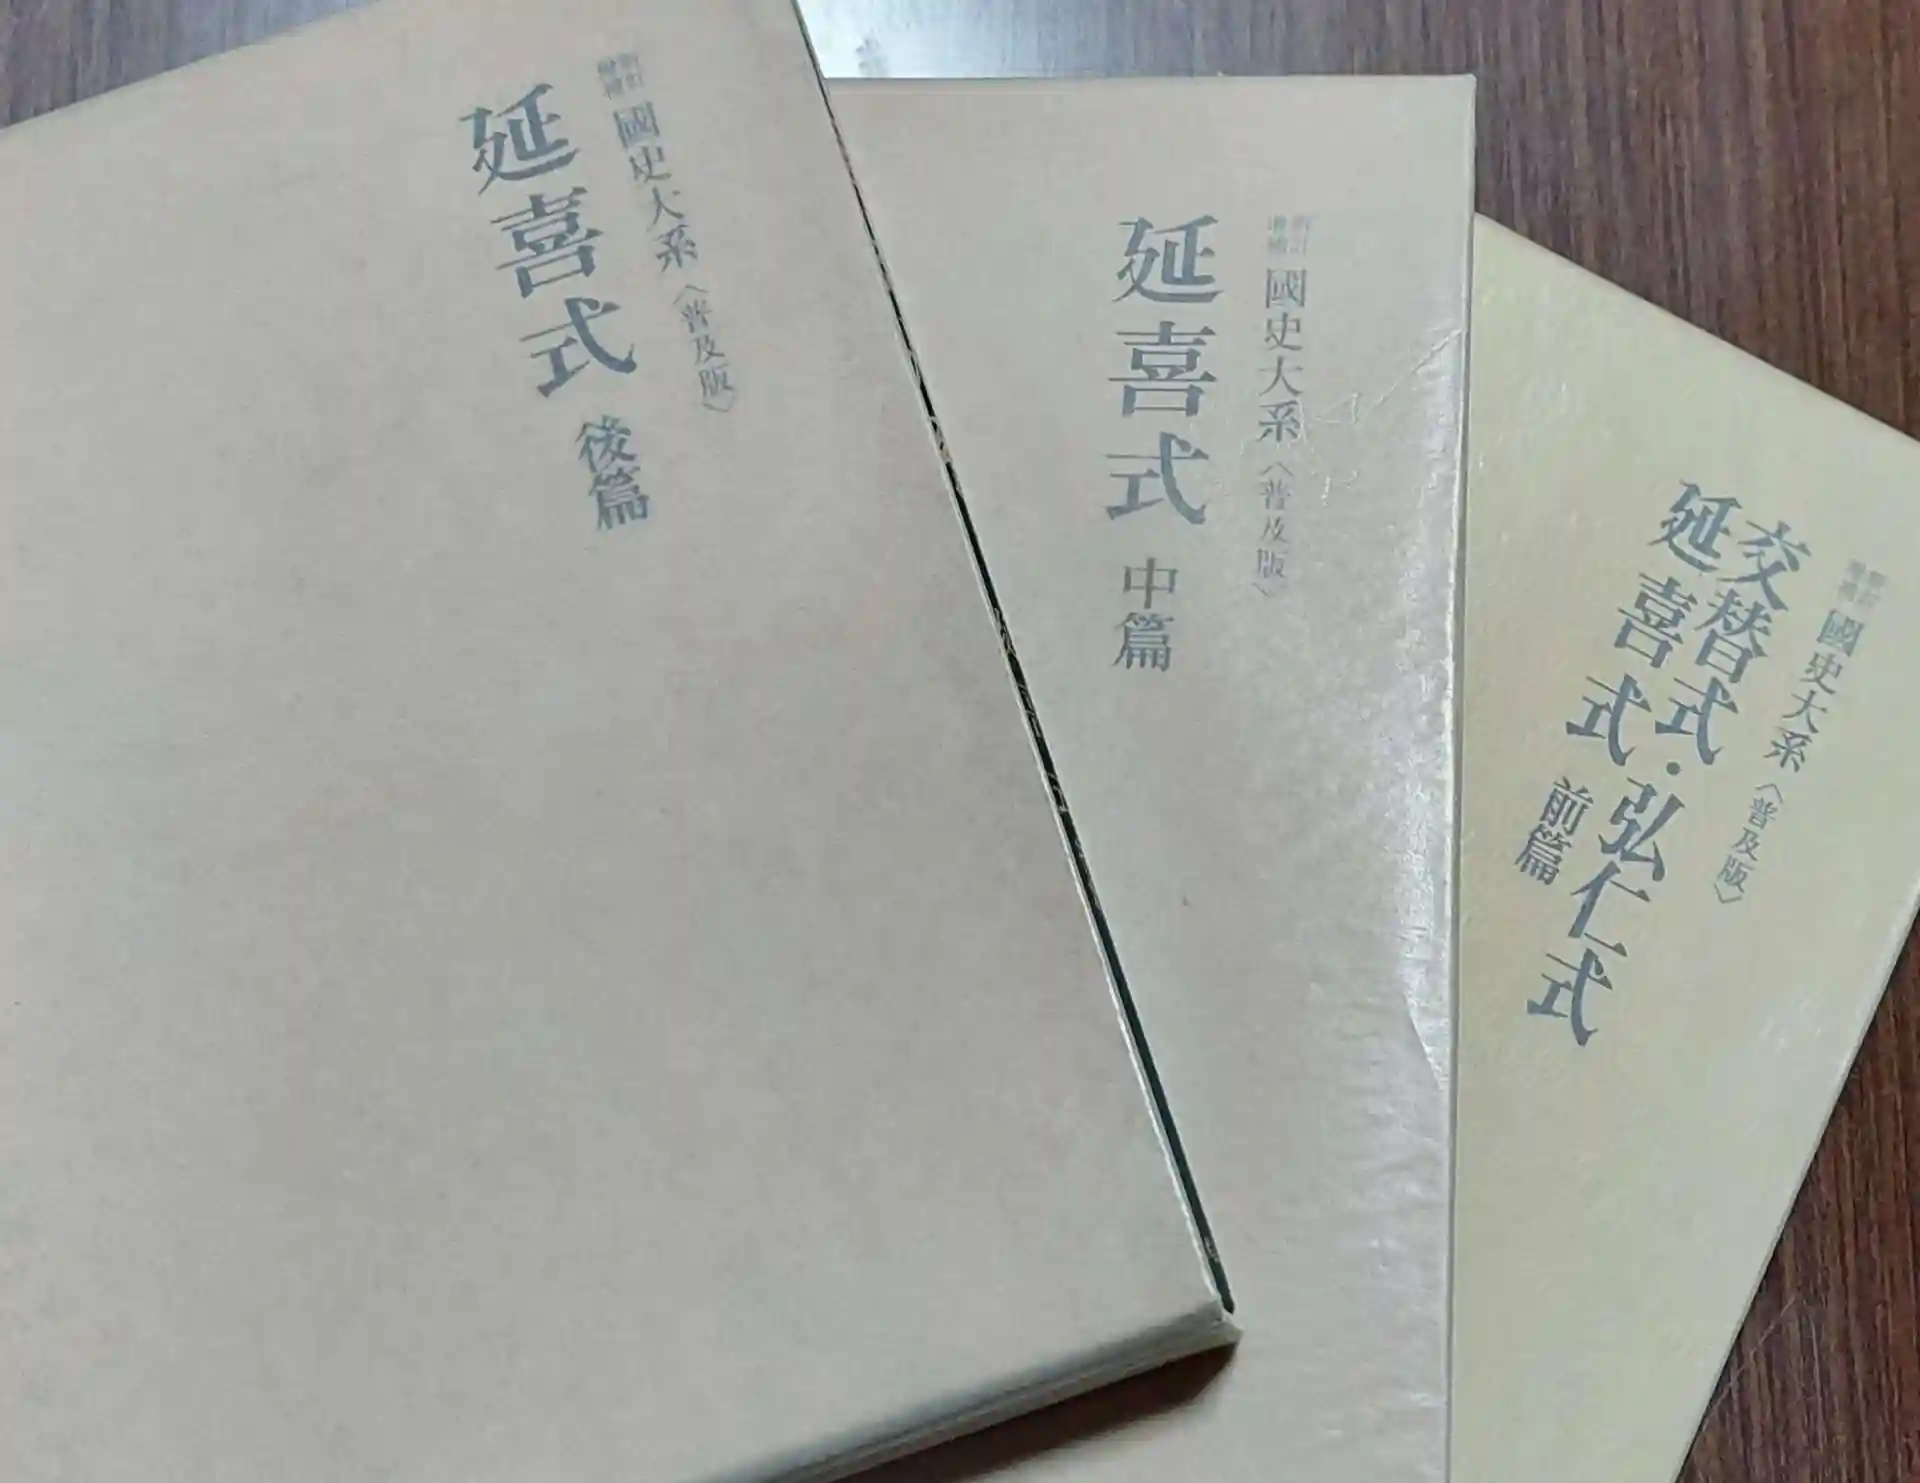 新訂増補 國史大系〈普及版〉
延喜式 後篇
新訂増補 國史大系〈普及版〉
延喜式 中篇
新訂増補 國史大系〈普及版〉
交替式・弘仁式
延喜式 前篇